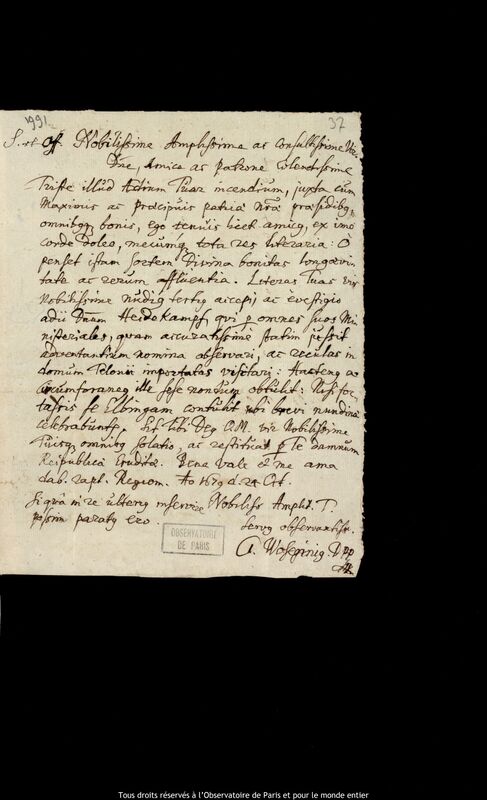 1991.
37
S. et Off. Nobilissime Amplissime ac Consultissime Vir
Dne, Amice ac Patrone Colendissime
Triste illud Aedium Tuar. incendium, juxta cum
Maximis ac praecipuis patriae nrae praesidibq,
omnibq bonis, ego tenuis licet amicq, ex imo
corde doleo, mecumq tota res literaria: O
penset istam sortem Divina bonitas longaevi
tate ac rerum affluentia. Literas Tuas Vir
Nobilissime nudiq tertiq accepi ac è vestigio
adii Dnum Heidekampf, qvi p omnes suos Mi
nisteriales, quam accuratissime statim jussit
adventantium nomina observari, ac reculas in
domum Telonii importatas visitari: Hactenq a
Circumforaneq ille sese nondum obtulit. Nisi for
tassis se Elbingam contulit ubi brevi nundinae
celebrabuntr. Sit tibi Deq O.M. vir Nobilissime
Tuisq omnibq solatio, ac restituat p Te damnum
Reipublicae Eruditae. Bene Vale et me ama
dab. rapt. Regiom. Ao 1679 d. 24 Oct.
Si qua in re ulteriq inservire Nobiliss. Amplit. T.
possim paratq ero.
Servq observantiss.
OBSERVATOIRE
DE PARIS
A. Woseginiq. D pp
Tous droits réservés à l'Observatoire de Paris et pour le monde entier